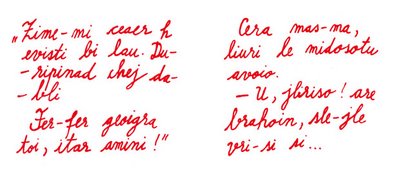 „Zime-mi ceaer h
evisti bi lau. Du-
-ripinad chej da-
-bli
Fer-fer geoigra
toi, itar amini!"
Cera mas-ma,
liuri le midosotu
avoio.
— U, jbriso! are
brahoin, sle-jle
vri-si si...